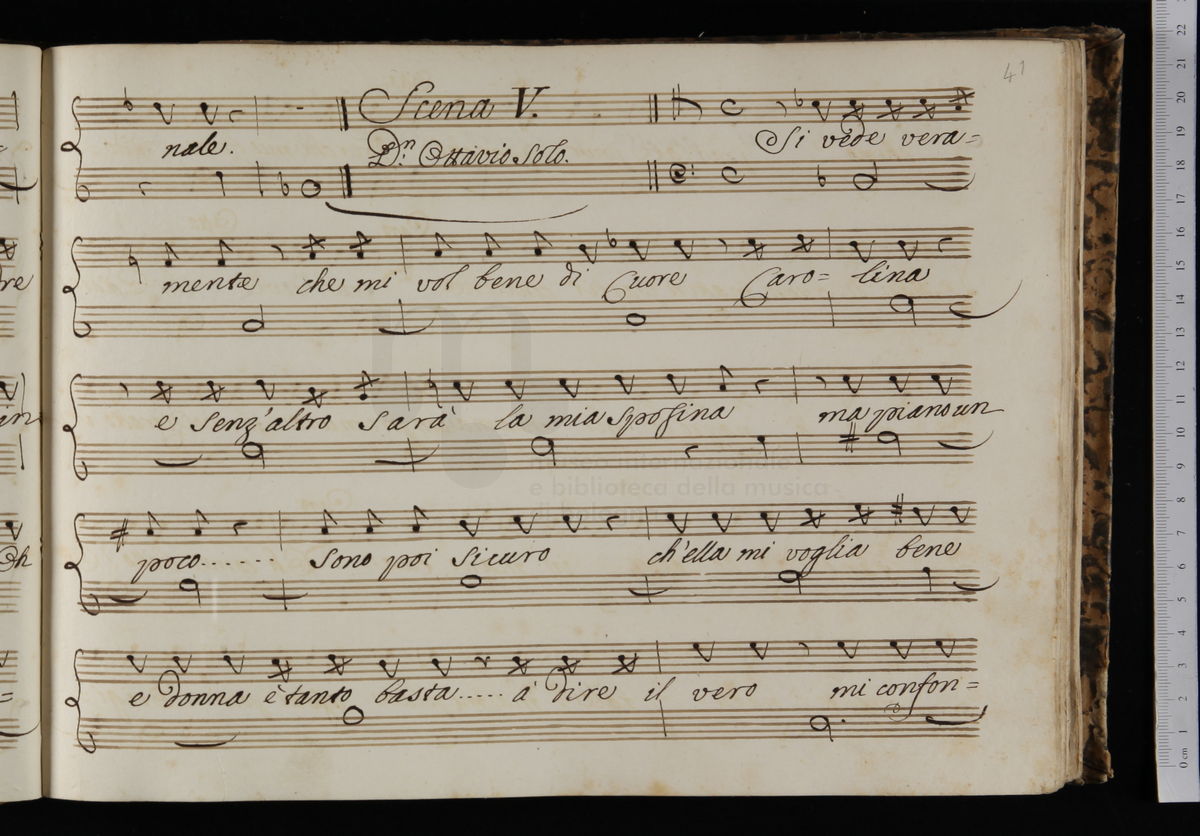 41
Scena V.
nale. D.n Ottavio solo. Si vede vera=
mente che mi vol bene di Cuore Caro= lina
e senz'altro sarà la mia sposina ma piano un
poco....... sono poi sicuro ch'ella mi voglia bene
e donna e tanto basta..... à dire il vero mi confon=
museo internazionale
e biblioteca della musica